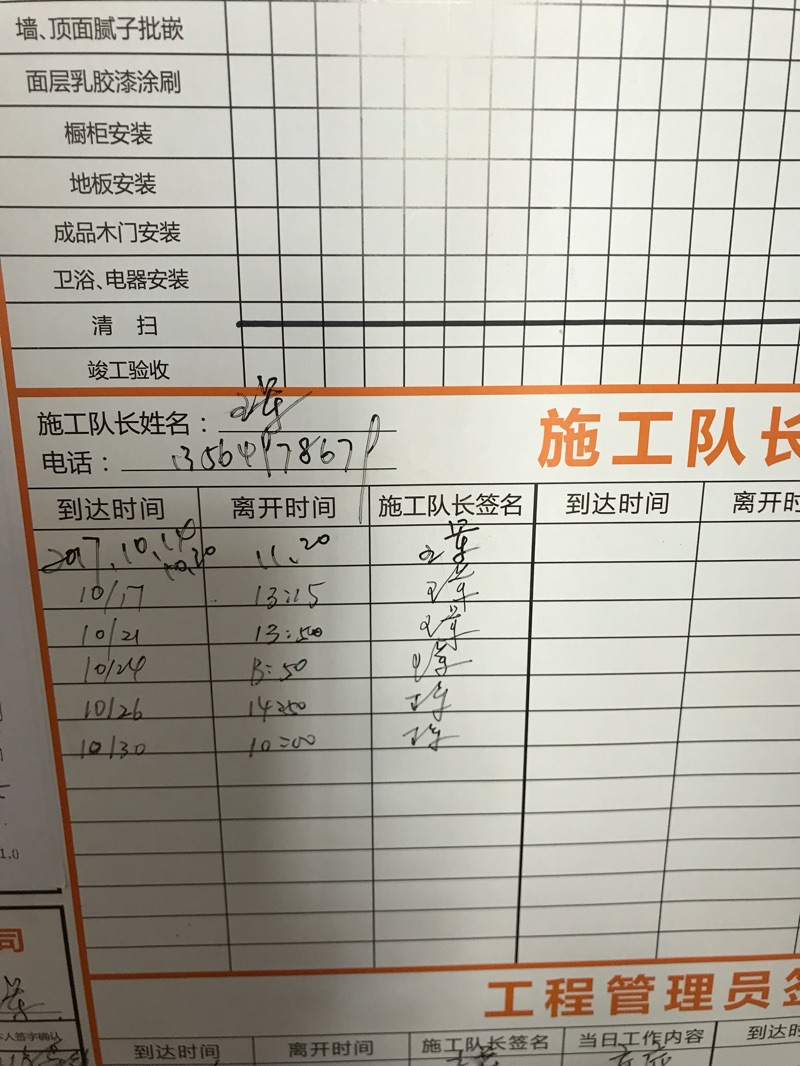 墙、顶面腻子批嵌
面层乳胶漆涂刷
橱柜安装
地板安装
成品木门安装
卫浴、电器安装
清 扫
竣工验收
施工队长姓名：
施工队长
电话： 13564978679
到达时间 离开时间 施工队长签名 到达时间 离开时
2017.10.14 11.20
10.20
10/17 13:15
10/21 13:500
10/24 13:50
10/26 14:50
10/30 10:00
1.0
司
工程管理员签
本人签字确认
到达时间 离开时间 施工队长签名 当日工作内容 到达时